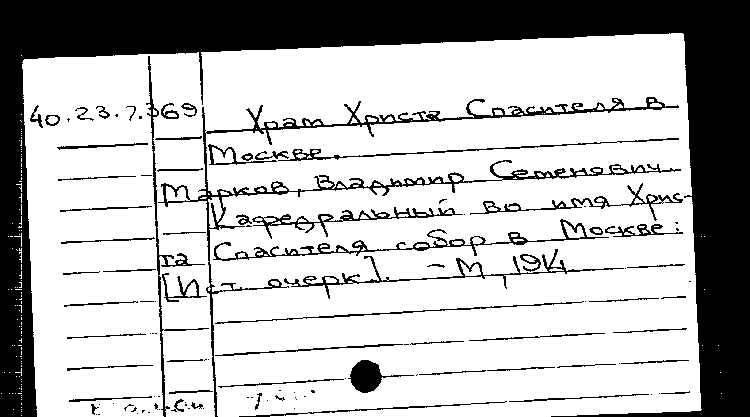 40.23.7.369 Храм Христа Спасителя в
Москве.
Марков, Владимир Семенович.
Кафедральный во имя Хрис-
та Спасителя собор в Москве:
[Ист. очерк]. - М, 1914